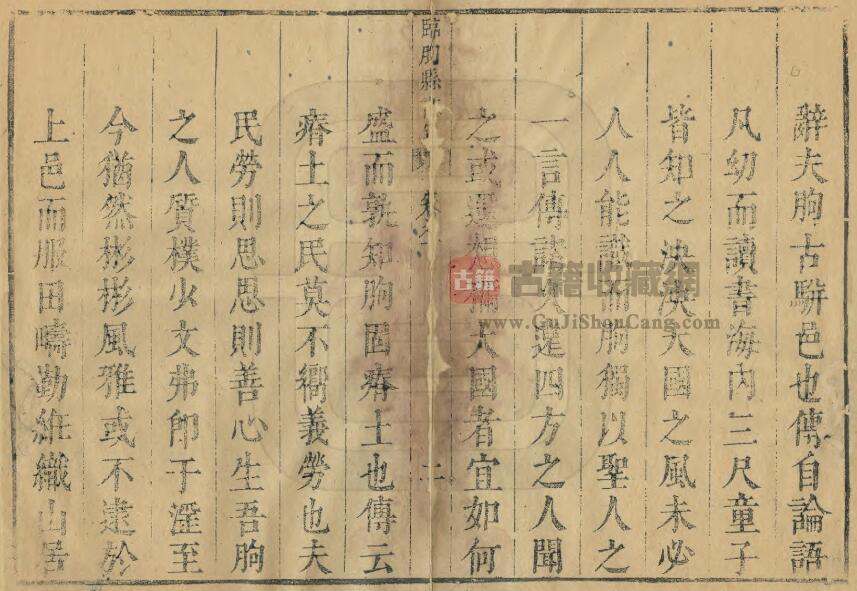 辭夫朐古駢邑也傳自論語
凡幼而讀書海内三尺童子
皆知之泱泱大國之風未必
人人能識而朐獨以聖人之
一言傳誦遐四方之人聞
之或遥想爲大國者宜如何
臨朐縣
二
盛而孰知朐固瘠土也傳云
瘠土之民莫不嚮義勞也夫
民勞則思思則善心生吾朐
之人質樸少文弗即于滛至
今猶然彬彬風雅或不逮於
上邑而服田疇勤維織山居
古籍
古籍收藏網
www.GuJiShouCang.com